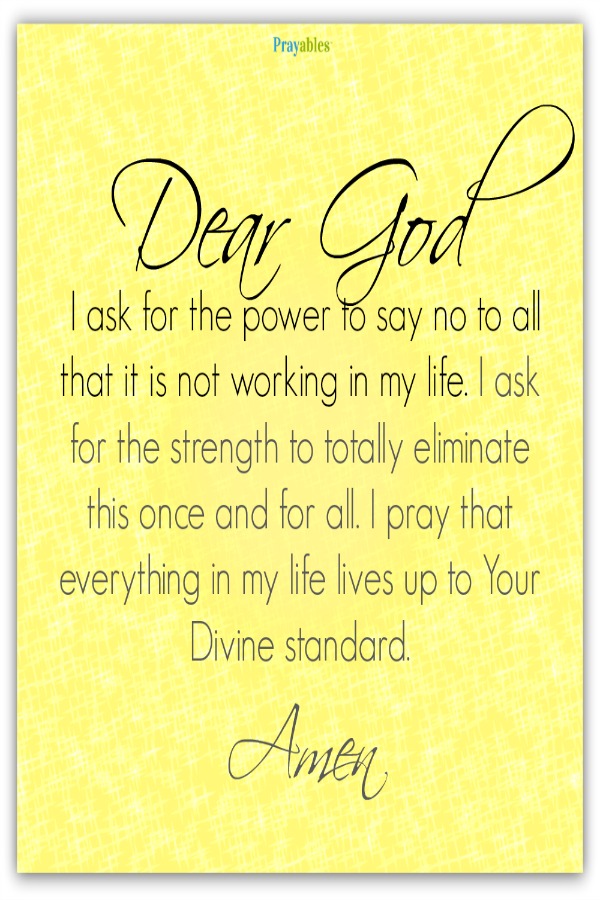 Prayables
Dear God
I ask for the power to say no to all
that it is not working in my life. I ask
for the strength to totally eliminate
this once and for all. I pray that
everything in my life lives up to Your
Divine standard.
Amen